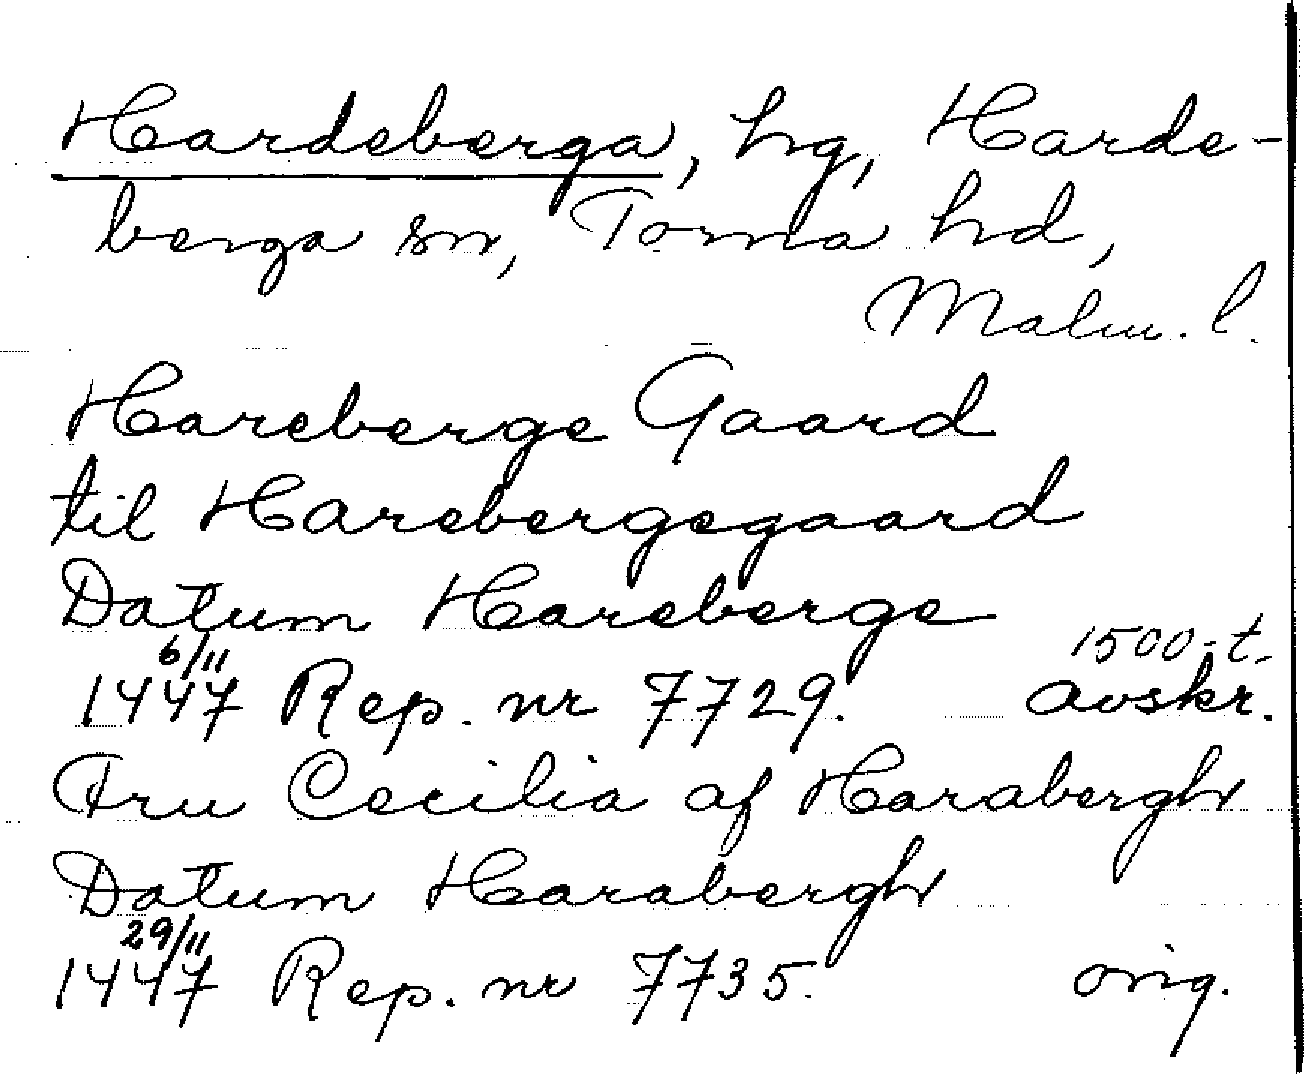 Hardeberga, hg, Harde-
berga sn, Torna hd,
Malm. l.
Hareberge Gaard
til Harebergegaard
Datum Hareberge
6/11 1500-t.
1447 Rep. nr 7729. avskr.
Fru Cecilia af Harabergh
Datum Harabergh
29/11
1447 Rep. nr 7735. orig.